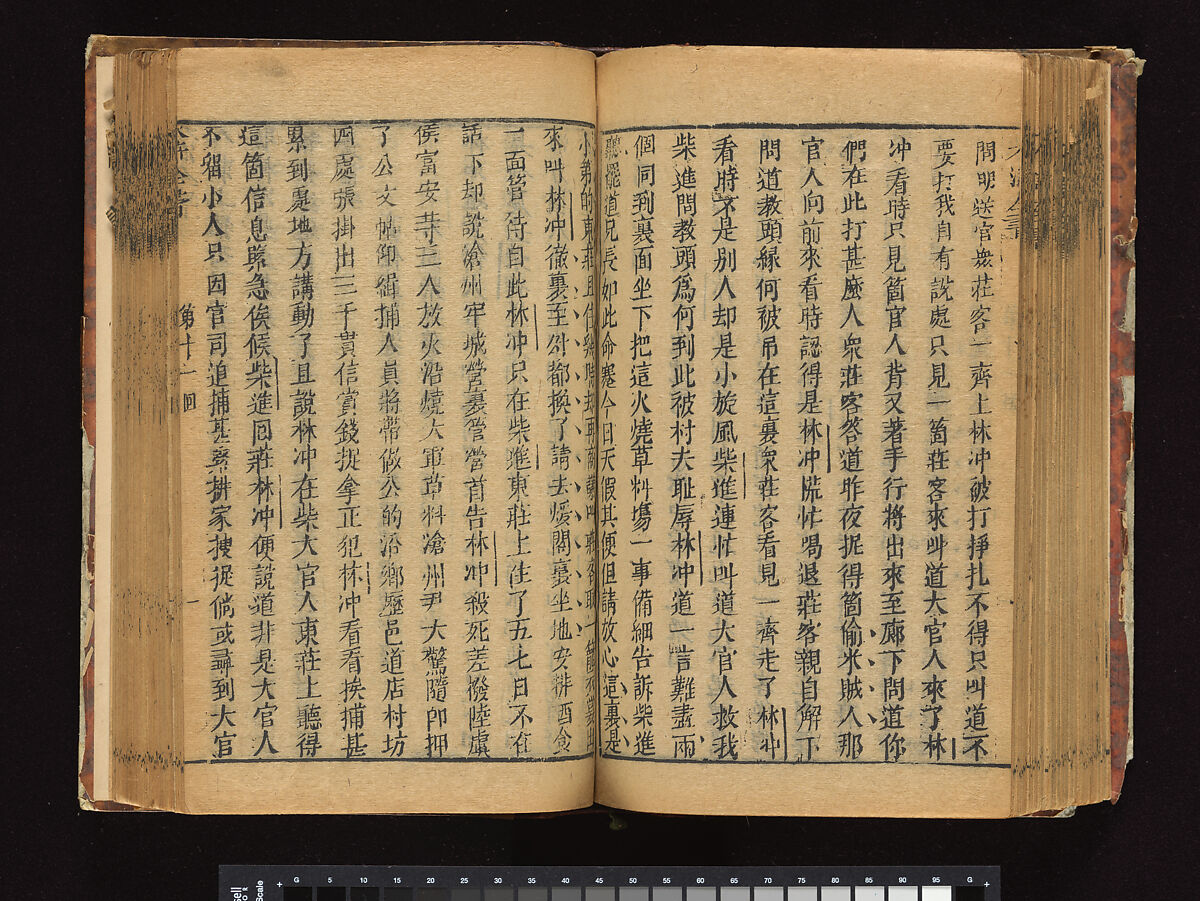 問明送官衆莊客一齊上林冲被打掙扎不得只叫道不
要打我自有說處只見一箇莊客來叫道大官人來了林
冲看時只見箇官人背叉著手行將出來至廊下問道你
們在此打甚麼人衆莊客答道昨夜捉得箇偷米賊人那
官人向前來看時認得是林冲慌忙喝退莊客親自解下
問道教頭緣何被吊在這裏衆莊客看見一齊走了林冲
看時不是別人却是小旋風柴進連忙叫道大官人救我
柴進問教頭爲何到此被村夫恥辱林冲道一言難盡兩
個同到裏面坐下把這火燒草料塲一事備細告訴柴進
聽罷道兄長如此命蹇今日天假其便但請放心這裏是
小弟的東莊且住
來叫林冲徹裏至外都換了請去煖閣裏坐地安排酒食
面管待自此林冲只在柴進東莊上住了五七日不在
話下却說滄州牢城營裏管營首告林冲殺死差撥陸虞
侯富安等三人放火沿燒大軍草料滄州尹大驚隨即押
了公文帖仰緝捕人員將帶做公的沿鄉歷邑道店村坊
四處張掛出三千貫信賞錢捉拿正犯林冲看看挨捕甚
緊到處地方講動了且說林冲在柴大官人東莊上聽得
這箇信息緊急俟候柴進回莊林冲便說道非是大官人
不留小人只因官司追捕甚緊排家搜捉倘或尋到大官
第十一回
一
G 5 10 15 20 25 30 35 40 45 50 55 60 65 70 75 80 85 90 95 G
Scale